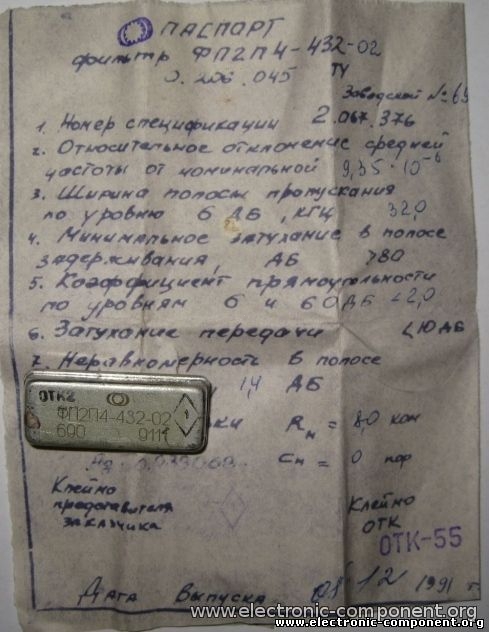 ПАСПОРТ
фильтр ФП2П4-432-02
045 ТУ
Заводской № 69
1. Номер спецификации 2.067.376
2. Относительное отклонение средней
частоты от номинальной 9,35·10⁻⁶
3. Ширина полосы пропускания
по уровню 6 дБ, кГц 32,0
4. Минимальное затухание в полосе
задерживания, дБ >80
5. Коэффициент прямоугольности
по уровням 6 и 60дБ <2,0
6. Затухание передачи <10 дБ
7. Неравномерность в полосе
1,4 дБ
ОТК2
ФП2П4-432-02
690 9111
1
Rн = 8,0 ком
Cн = 0 пф
Клеймо
представителя
заказчика
Клеймо
ОТК
ОТК-55
Дата выпуска 12 1991 г.
www.electronic-component.org
www.electronic-component.org